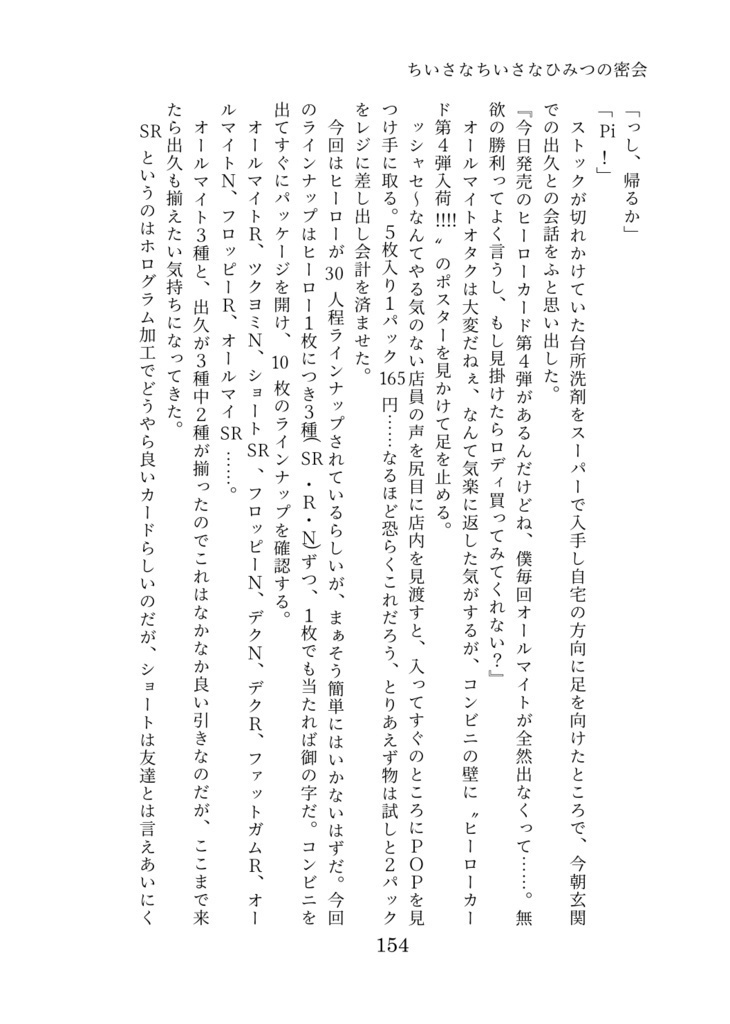 ちいさなちいさなひみつの密会
「っし、帰るか」
「Pi！」
　ストックが切れかけていた台所洗剤をスーパーで入手し自宅の方向に足を向けたところで、今朝玄関
での出久との会話をふと思い出した。
『今日発売のヒーローカード第４弾があるんだけどね、僕毎回オールマイトが全然出なくって……。無
欲の勝利ってよく言うし、もし見掛けたらロディ買ってみてくれない？』
　オールマイトオタクは大変だねぇ、なんて気楽に返した気がするが、コンビニの壁に〝ヒーローカー
ド第４弾入荷!!!!〟のポスターを見かけて足を止める。
　ッシャセ〜なんてやる気のない店員の声を尻目に店内を見渡すと、入ってすぐのところにＰＯＰを見
つけ手に取る。５枚入り１パック165円……なるほど恐らくこれだろう、とりあえず物は試しと２パック
をレジに差し出し会計を済ませた。
　今回はヒーローが30人程ラインナップされているらしいが、まぁそう簡単にはいかないはずだ。今回
のラインナップはヒーロー１枚につき３種(SR・R・N)ずつ、１枚でも当たれば御の字だ。コンビニを
出てすぐにパッケージを開け、10枚のラインナップを確認する。
　オールマイトR、ツクヨミN、ショートSR、フロッピーN、デクN、デクR、ファットガムR、オー
ルマイトN、フロッピーR、オールマイSR……。
　オールマイト３種と、出久が３種中２種が揃ったのでこれはなかなか良い引きなのだが、ここまで来
たら出久も揃えたい気持ちになってきた。
　SRというのはホログラム加工でどうやら良いカードらしいのだが、ショートは友達とは言えあいにく
154